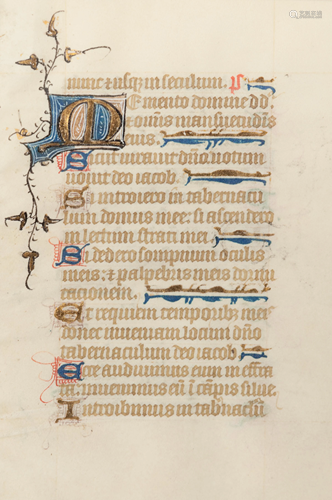 nunc et usq; in seculum. p̄s
Memento domine dd.
et omnis mansuetudinis
eius.
Sicut iuravit dño votum
vovit deo iacob.
Si introiero in tabernacu
lum domus mee: si ascendero
in lectum strati mei.
Si dedero sompnum oculis
meis: et palpebris meis dormi
tacionem.
Et requiem temporibus meis
donec inveniam locum dño
tabernaculum deo iacob.
Ecce audivimus eum in effra
ta: invenimus eū ī cāpis silve.
Introibimus in tab'naclū